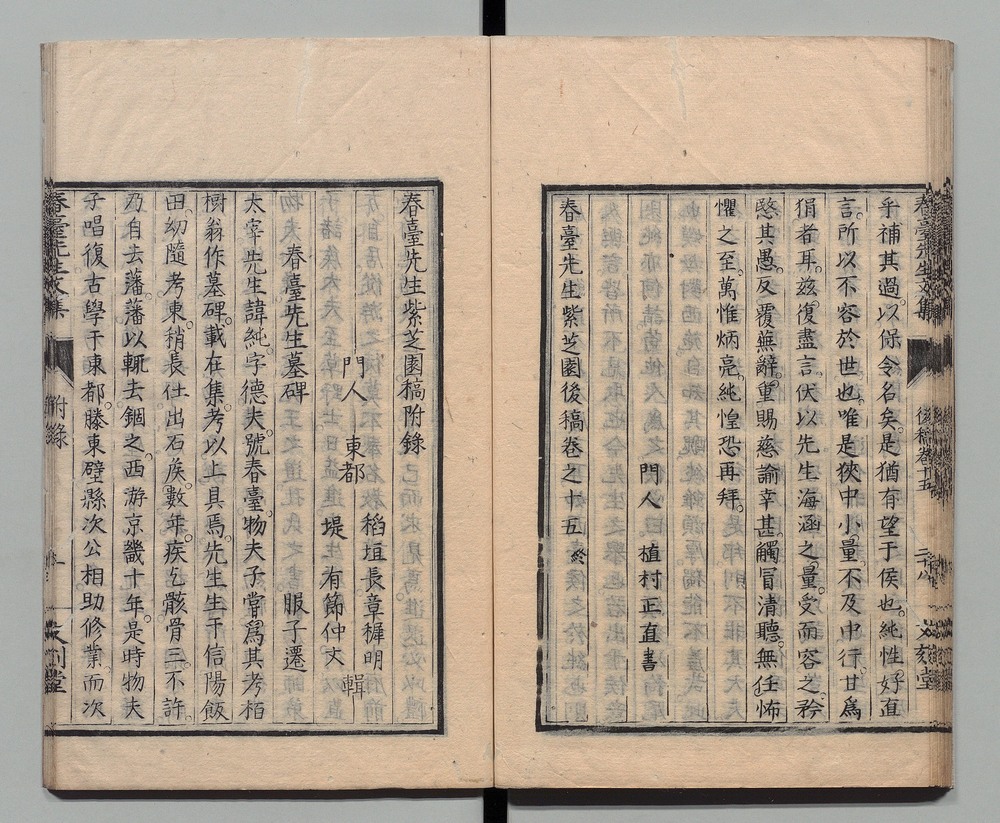 乎補其過以保令名矣是猶有望于侯也純性好直
言所以不容於世也唯是狹中小量不及中行甘爲
狷者耳茲復盡言伏以先生海涵之量受而容之矜
愍其愚反覆蕪辭重賜慈諭幸甚觸冒清聽無任怖
懼之至萬惟炳亮純惶恐再拜
門人 植村正直書
春臺先生紫芝園後稿卷之十五 終
春臺先生紫芝園稿附錄
門人 東都 稻垣長章穉明
堤有節仲文 輯
春臺先生墓碑 服子遷
太宰先生諱純字德夫號春臺物夫子嘗爲其考栢
樹翁作墓碑載在集考以上具焉先生生于信陽飯
田幼隨考東稍長仕出石矦數年疾乞骸骨三不許
乃自去藩藩以輒去錮之西游京畿十年是時物夫
子唱復古學于東都滕東壁縣次公相助修業而次
春臺先生文集
後稿卷十五
二十八
文刻堂
春臺先生文集
附錄
一
文刻堂